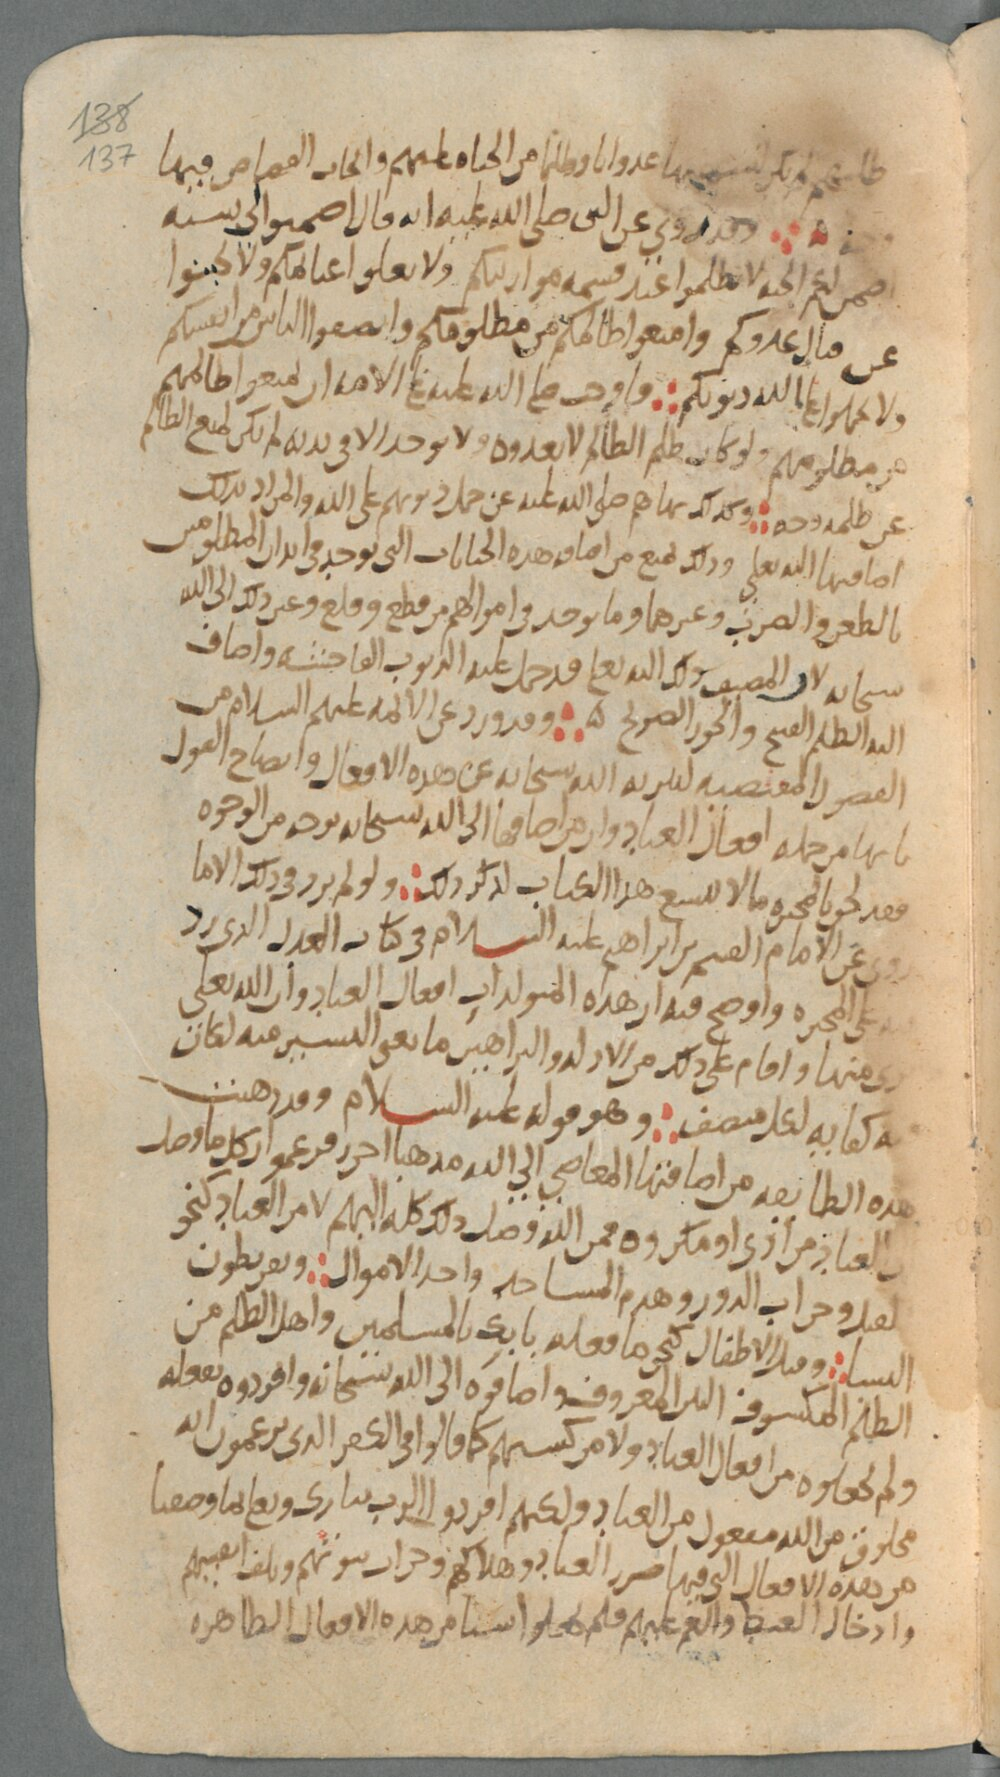 138
137
عدوانا وظلما من الجناه عليهم وايجاب القصاص فيها
وقد روي عن النبي صلى الله عليه انه قال اضمنوا لي ستة
اضمن لكم الجنه لا تظلموا عند قسمه مواريثكم ولا تغلوا غنائمكم ولا تجبنوا
عن قتال عدوكم وامنعوا ظالمكم من مظلومكم وانصفوا الناس من انفسكم
ولا تحملوا على الله ذنوبكم فاوجب صلى الله عليه على الامه ان يمنعوا ظالمهم
من مظلومهم ولو كان ظلم الظالم لا يعدوه ولا يوجد الا في بدنه لم يكن لمنع الظالم
عن ظلمه وجه وكذلك نهاهم صلى الله عليه عن حمل ذنوبهم على الله والمراد بذلك
اضافتها الى الله تعلى وذلك يمنع من اضافه هذه الجنايات التي توجد في ابدان المظلومين
بالطعن والضرب وغيرهما وما يوجد في اموالهم من قطع وقلع وغير ذلك الى الله
سبحانه لان المضيف ذلك الى الله تعلى قد حمل عليه الذنوب الفاحشه واضاف
اليه الظلم القبيح والجور الصريح ه وقد ورد عن الائمه عليهم السلام من
الفصول المقتضيه لتنزيه الله سبحانه عن هذه الافعال وايضاح القول
بانها من جمله افعال العباد وان من اضافها الى الله سبحانه بوجه من الوجوه
فقد لحق بالمجبره ما لا يتسع هذا الكتاب لذكر ذلك ولو لم يرد في ذلك الا ما
روي عن الامام القسم بن ابراهيم عليه السلام في كتاب العدل الذي رد
على المجبره واوضح فيه ان هذه المتولدات افعال العباد وان الله تعلى
بري منها واقام على ذلك من الادله والبراهين ما بعض اليسير منه لكان
فيه كفايه لكل منصف وهو قوله عليه السلام وقد ذهبت
هذه الطائفه من اضافتها المعاصي الى الله مذهبا اخر فزعموا ان كل ما وصل
الى العباد من اذى او مكروه فمن الله وصل ذلك كله اليهم لا من العباد كنحو
القتل وخراب الدور وهدم المساجد واخذ الاموال وبقر بطون
النسا وقتل الاطفال كنحو ما فعله بابك بالمسلمين واهل الظلم من
الظلم المكشوف البين المعروف واضافوه الى الله سبحانه وافردوه بفعله
ولم يجعلوه من افعال العباد ولا من كسبهم كما قالوا في الكفر الذي يزعمون انه
مخلوق من الله مفعول من العباد ولكنهم افردوا الرب تبارك وتعلى بما وصفنا
من هذه الافعال التي فيها ضرر العباد وهلاكهم وخراب بيوتهم وتلف انفسهم
وادخال الغيظ والغم عليهم فلم يجعلوا شيئا من هذه الافعال الظاهره